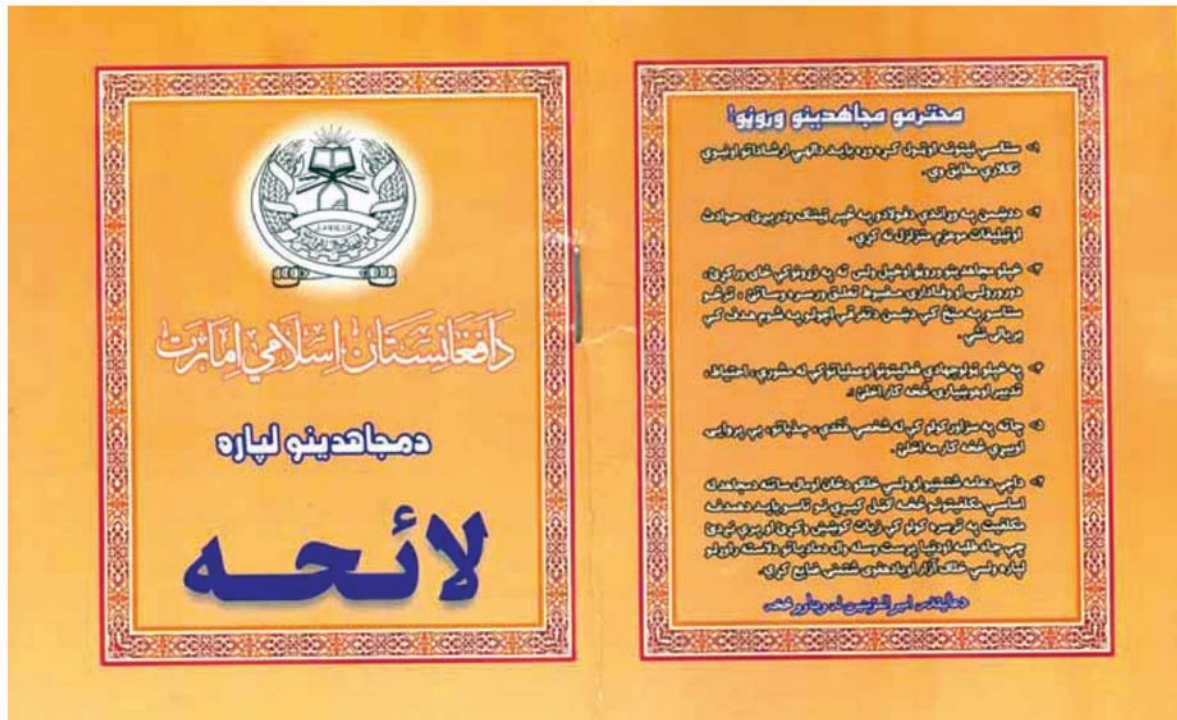 د افغانستان اسلامي امارت
دمجاهدينو لپاره
لائحه
محترمو مجاهدينو وروڼو!
۱- ستاسي نيتونه اوټول کړه وړه بايد دالهي ارشاداتو اونبوي
تګلارې مطابق وي.
۲- ددښمن په وړاندي دفولادو په څير ټينګ ودريږئ، حوادث
اوتبليغات موهزم متزلزل نه کړي.
۳- خپلو مجاهدينو وروڼو اوخپل ولس ته په زړونوکي ځای ورکړئ،
دورورولۍ او وفادارۍ مضبوط تعلق ورسره وساتئ، ترڅو
ستاسو په مينځ کي، دښمن دتفرقې اچولو په شوم هدف کي
بريالی نشي.
۴- په خپلو ټولوجهادي فعاليتونو اوعملياتوکي له مشورې، احتياط،
تدبير اوهوښيارۍ څخه کار اخلئ.
۵- چاته په سزاورکولو کي له شخصي عُقدې، جذباتو، بې پروايۍ
اوبيړي څخه کار مه اخلئ.
۶- داچي دعامه شتمنيو او ولسي خلکو دځان اومال ساتنه دمجاهد له
اساسي مکلفيتونو څخه ګڼل کيږي نو تاسو بايد دهمدغه
مکلفيت په ترسره کولو کي زيات کوښښ وکړئ او پرې نږدئ
چي جاه طلبه اودنيا پرست وسله وال دماديانو دلاسته راوړلو
لپاره ولسي خلک آزار اوياد هغوی شتمنۍ ضايع کړي.
دعاليقدر اميرالمؤمنين له ويناوو څخه